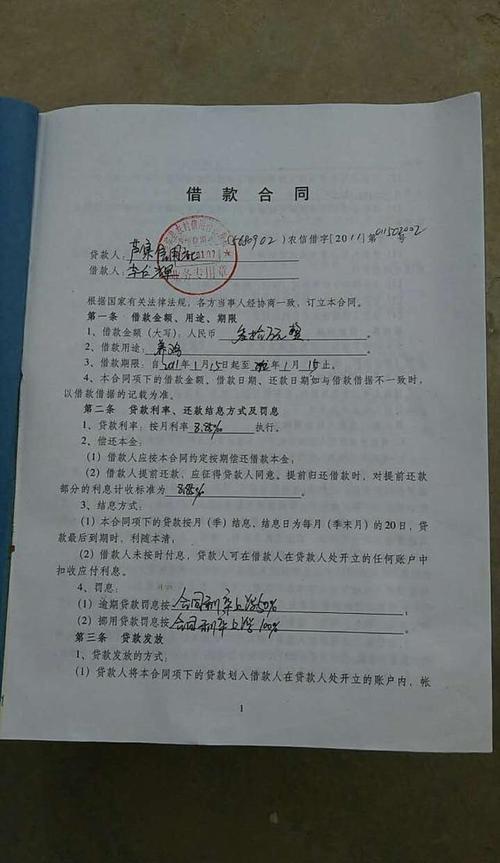 借款合同
)农信借字[2011]第 号
贷款人：
借款人：
业务专用章
根据国家有关法律法规，各方当事人经协商一致，订立本合同。
第一条 借款金额、用途、期限
1、借款金额（大写）：人民币 叁拾万元整 。
2、借款用途： 养鸡 。
3、借款期限：自2011年1月15日起至 年1月15止。
4、本合同项下的借款金额、借款日期、还款日期如与借款借据不一致时，
以借款借据的记载为准。
第二条 贷款利率、还款结息方式及罚息
1、贷款利率：按月利率 8.85‰ 执行。
2、偿还本金：
（1）借款人应按本合同约定按期偿还借款本金；
（2）借款人提前还款，应征得贷款人同意。提前归还借款时，对提前还款
部分的利息计收标准为 8.85‰ 。
3、结息方式：
（1）本合同项下的贷款按月（季）结息，结息日为每月（季末月）的20日，贷
款最后到期时，利随本清；
（2）借款人未按时付息，贷款人可在借款人在贷款人处开立的任何账户中
扣收应付利息。
4、罚息：
（1）逾期贷款罚息按 合同利率上浮50% ；
（2）挪用贷款罚息按 合同利率上浮100% 。
第三条 贷款发放
1、贷款发放的方式：
（1）贷款人将本合同项下的贷款划入借款人在贷款人处开立的账户内，帐
1